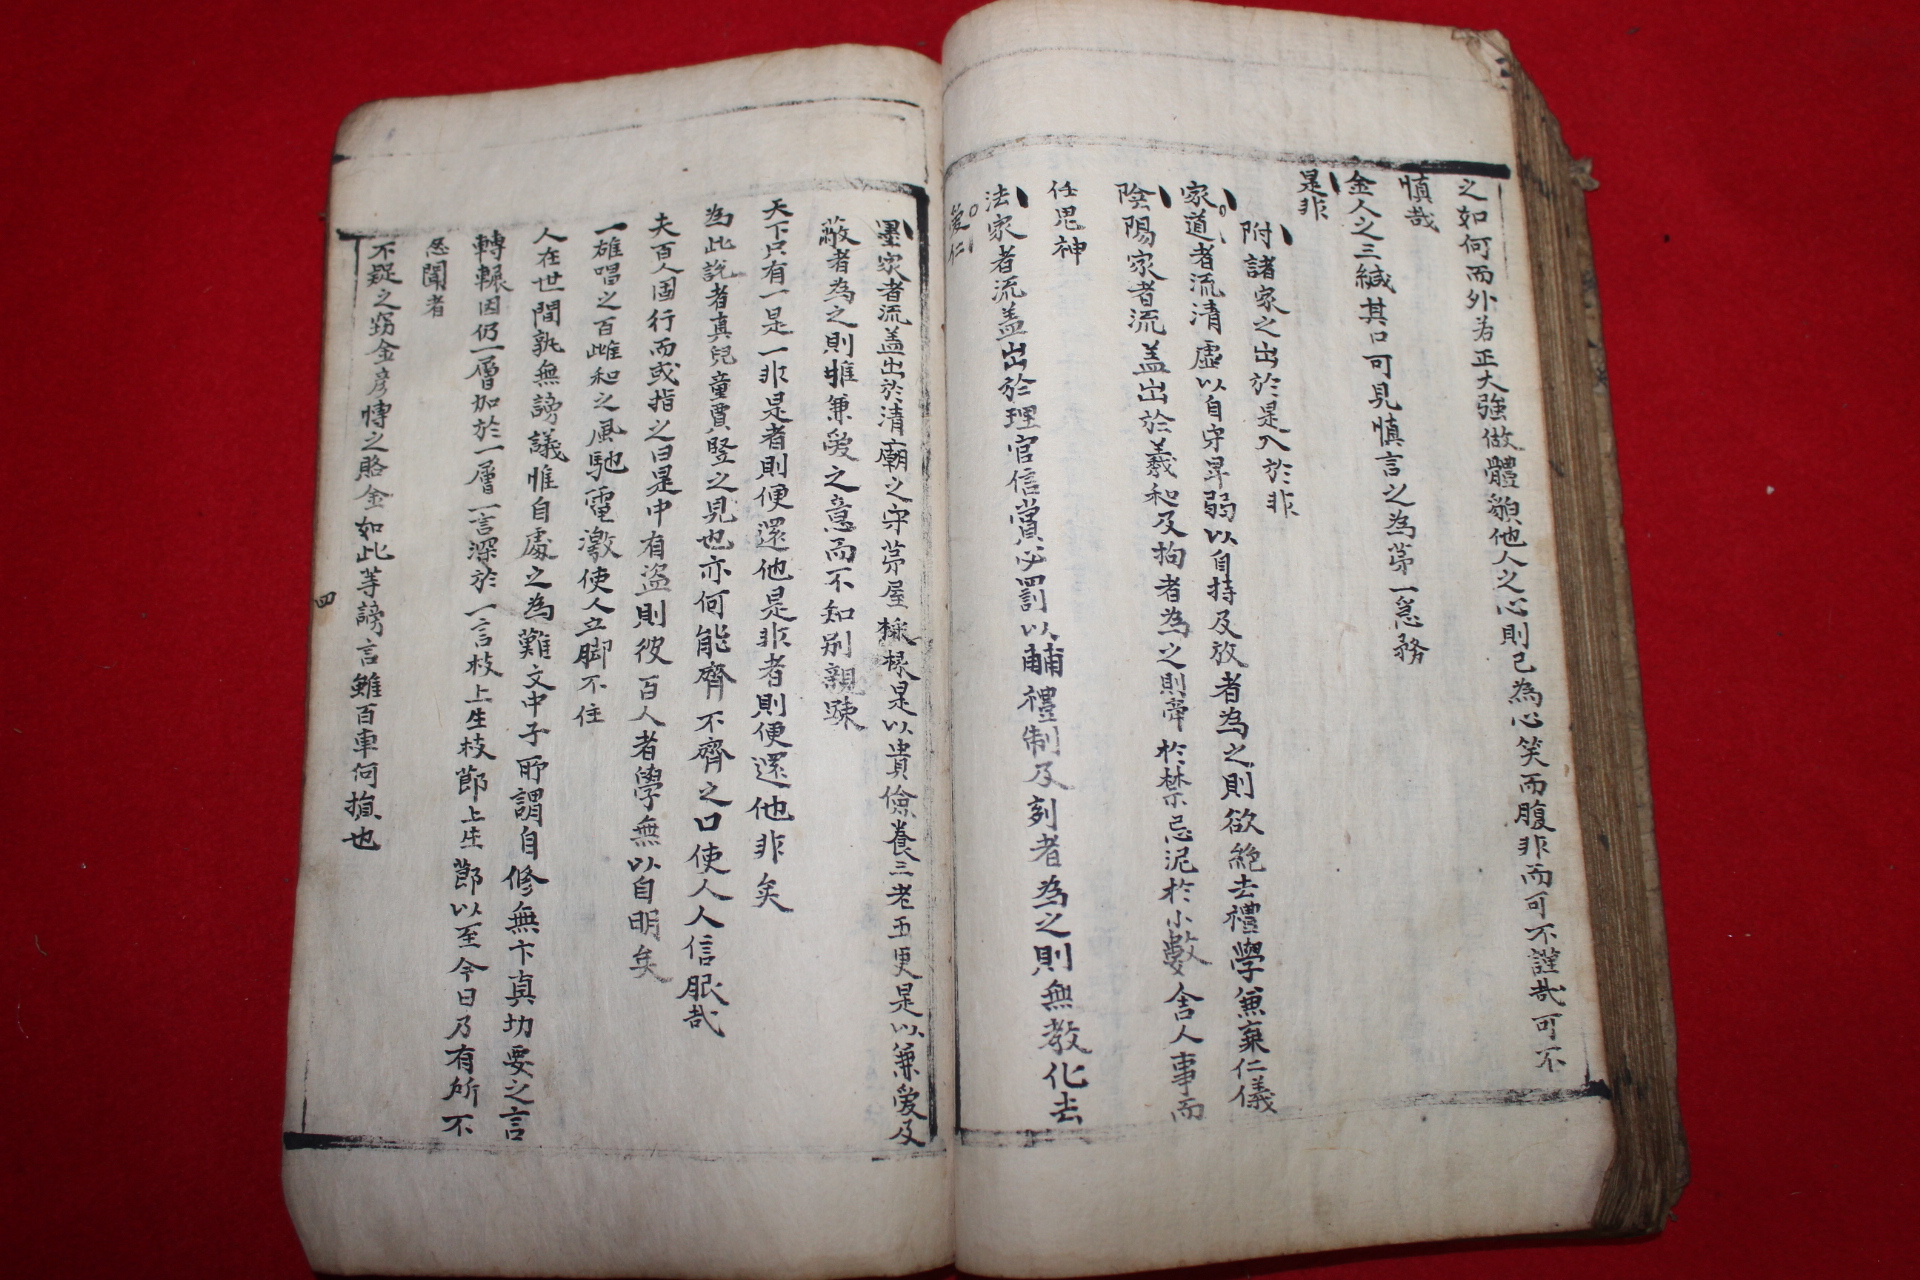 之如何而外若正大強做體貌他人之心則已為心笑而腹非而可不謹哉可不
慎哉
金人之三緘其口可見慎言之為第一急務
是非
附諸家之出於是入於非
家道者流清虛以自守卑弱以自持及放者為之則欲絶去禮學兼棄仁儀
陰陽家者流盖出於羲和及拘者為之則牽於禁忌泥於小數舍人事而
任思神
法家者流盖出於理官信賞必罰以輔禮制及刻者為之則無教化去
愛仁
墨家者流盖出於清廟之守茅屋採椽是以貴儉養三老五更是以兼愛及
蔽者為之則推兼愛之意而不知別親踈
天下只有一是一非是者則便還他是非者則便還他非矣
為此說者真兒童賈竪之見也亦何能齊不齊之口使人人信服哉
夫百人固行而或指之曰是中有盜則彼百人者學無以自明矣
一雄唱之百雌和之風馳電激使人立脚不住
人在世間孰無謗議惟自處之為難文中子所謂自修無卞真切要之言
轉輾因仍一層加於一層一言深於一言枝上生枝節上生節以至今日乃有所不
忍聞者
不疑之竊金彦愽之賂金如此等謗言雖百車何損也
四